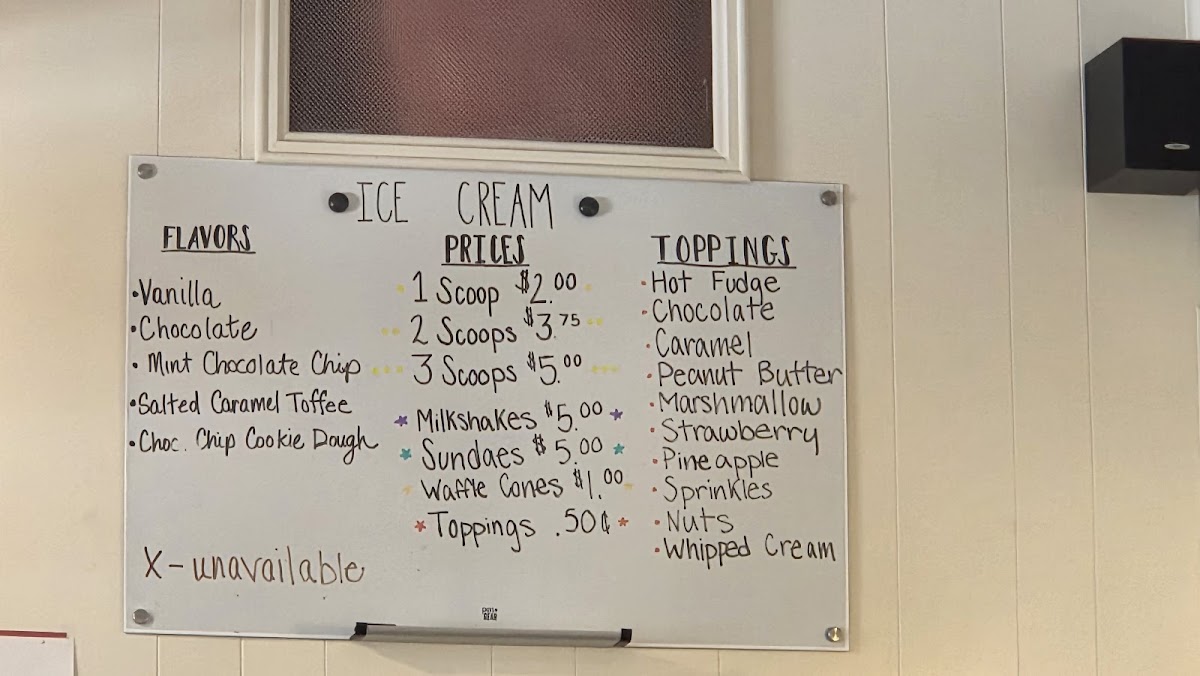 ICE CREAM
FLAVORS
• Vanilla
• Chocolate
• Mint Chocolate Chip
• Salted Caramel Toffee
• Choc. Chip Cookie Dough
X - unavailable
PRICES
1 Scoop $2.00
2 Scoops $3.75
3 Scoops $5.00
* Milkshakes $5.00 *
* Sundaes $5.00 *
Waffle Cones $1.00
* Toppings .50¢ *
TOPPINGS
• Hot Fudge
• Chocolate
• Caramel
• Peanut Butter
• Marshmallow
• Strawberry
• Pineapple
• Sprinkles
• Nuts
• Whipped Cream